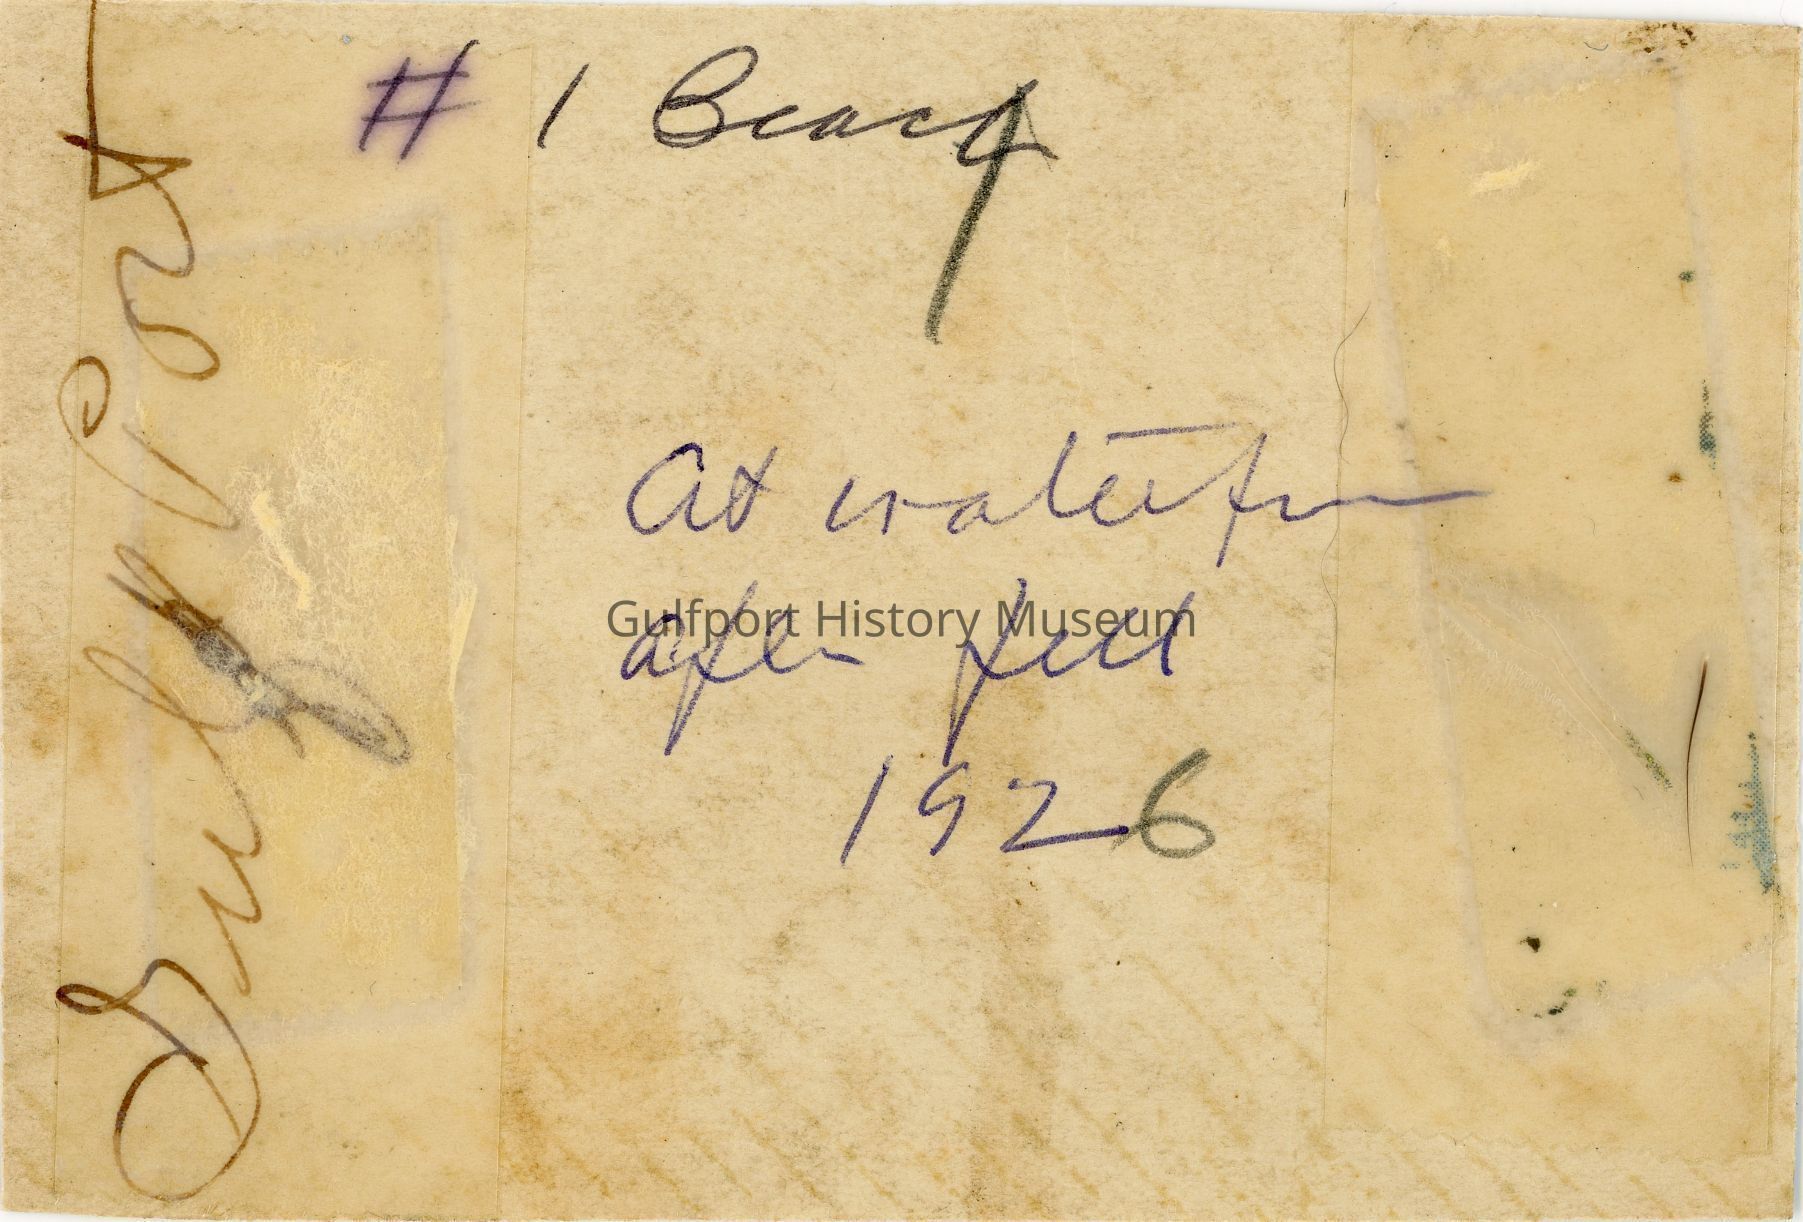 # 1 Beach
Gulfport
At waterfron
after fill
1926
Gulfport History Museum